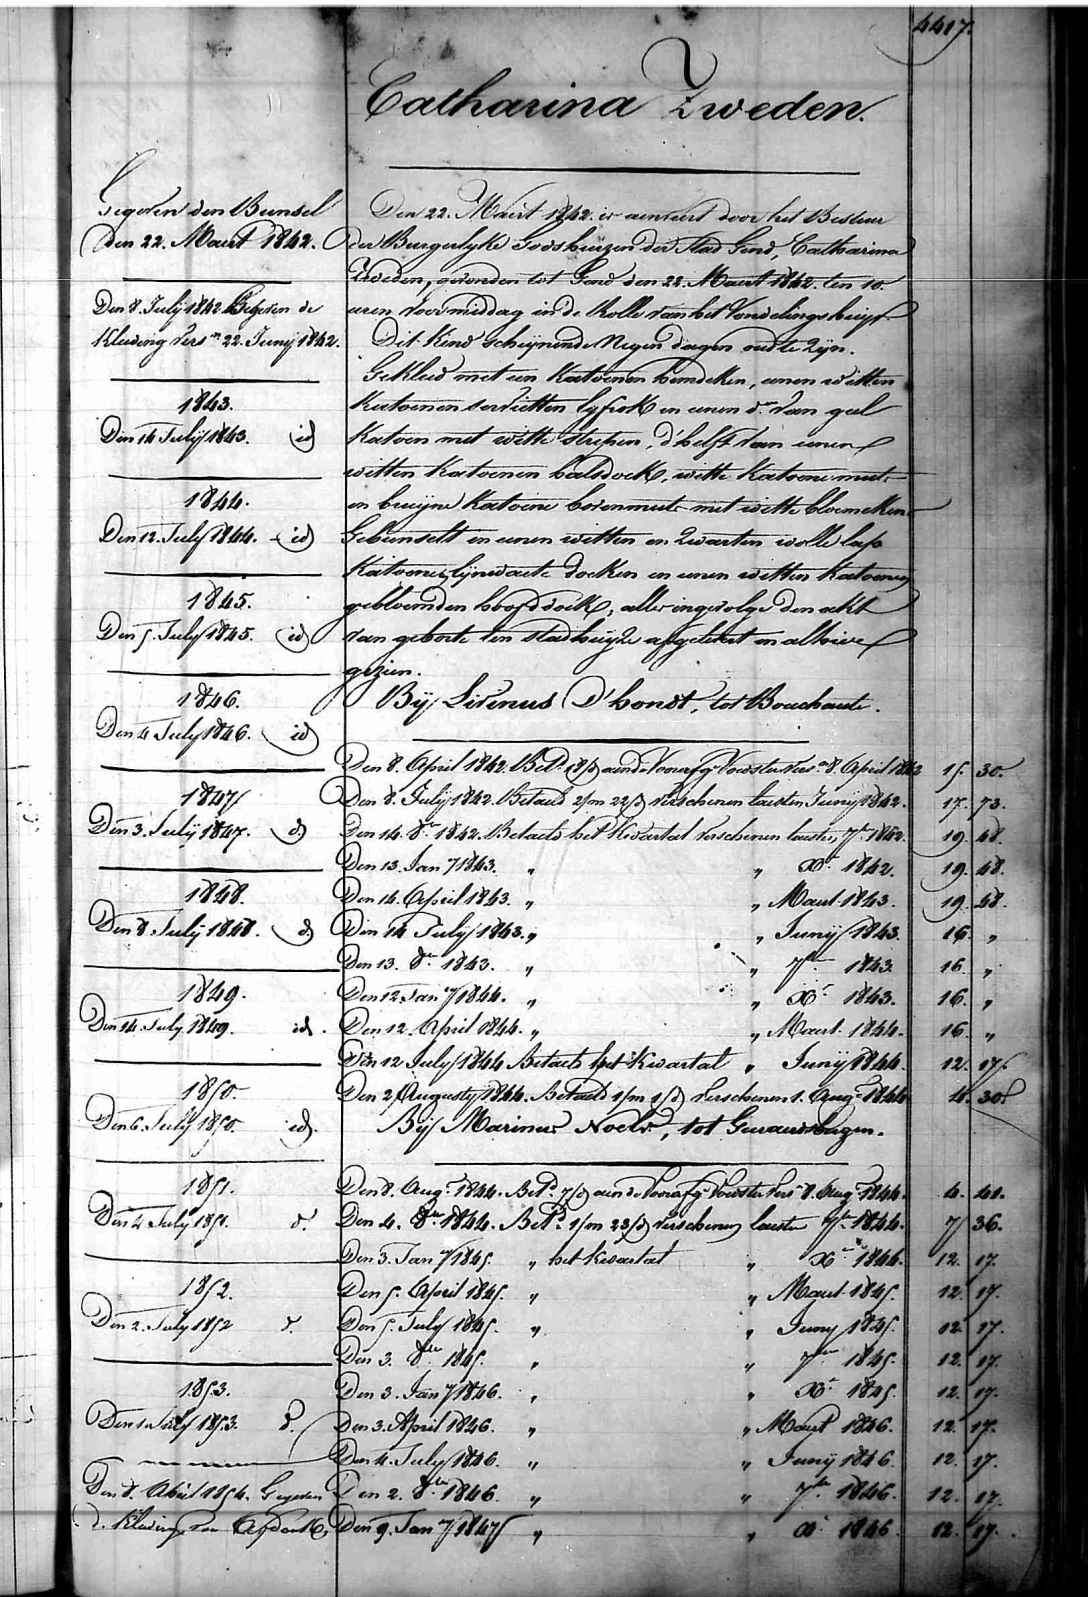 4417.
Catharina Zweden.
Gegeven den Bunsel
den 22. Maert 1842.
Den 8. July 1842 Gegeven de
Kleeding vers.n 22. Junij 1842.
1843.
Den 14 July 1843. id
1844.
Den 12. July 1844. id
1845.
Den 5. July 1845. id
1846.
Den 4 July 1846. id
1847
Den 3. July 1847. d
1848.
Den 8. July 1848. d
1849.
Den 14. July 1849. id.
1850.
Den 6. July 1850. id.
1851.
Den 4 July 1851. d.
1852.
Den 2. July 1852 d.
1853.
Den 1 July 1853. d.
Den 8. April 1854. Gegeven
d. Kleeding van
Den 22. Maert 1842. is aenveert door het Bestuer
der Burgerlyke Godshuizen der Stad Gend, Catharina
Zweden, gevonden tot Gend den 22. Maert 1842. ten 10.
uren voormiddag in de Rolle van het Vondelingshuijs.
Dit Kind scheijnende Negen dagen oud te Zijn.
Gekleed met een Katoenen hemdeken, eenen witten
Katoenen servietten lyfrok en eenen d.o van geel
Katoen met witte strepen, d'helft van eenen
witten Katoenen halsdoek, witte Katoene muts
en bruijne Katoene bovenmuts met witte bloemeken
Gebunselt in eenen witten en Zwarten wolle lap
Katoene lijnwaete doeken en eenen witten Katoenen
gebloemden hoofddoek, alles ingevolge den akt
van geboorte ten stadhuijze opgesteld en alhier
gezien.
Bij Livinus D'hondt, tot Bouchaute.
Den 8. April 1842. Bet.d 18/d aen de Voorafg. Voedster vers.n 8. April 1842 15. 30.
Den 8. Julij 1842. Betaeld 2/m 22/d verschenen lasten Junij 1842. 17. 73.
Den 14. 8.er 1842. Betaeld het Kwartal verschenen lasten 7.er 1842. 19. 48.
Den 13. Jan.y 1843. " " X.r 1842. 19. 48.
Den 14. April 1843. " " Maert 1843. 19. 48.
Den 14 July 1843. " " Junij 1843. 16. "
Den 13. 8.er 1843. " " 7.er 1843. 16 "
Den 12 Jan.y 1844. " " X.r 1843. 16. "
Den 12. April 1844. " " Maert 1844. 16. "
Den 12 July 1844 Betaeld het Kwartal " Junij 1844. 12. 17.
Den 2 Augusty 1844. Betaeld 1/m 1/d verschenen 1. Aug.t 1844 4. 30.
Bij Marinus Noels, tot Geeraerdsbergen.
Den 8. Aug.t 1844. Bet.d 7/d aen de Voorafg. Voedster vers.n 8. Aug.t 1844. 4. 41.
Den 4. 8.er 1844. Bet.d 1/m 23/d verschenen lasten 7.er 1844. 7 36.
Den 3. Jan.y 1845. " het Kwartal " X.r 1844. 12. 17.
Den 5. April 1845. " " Maert 1845. 12. 17.
Den 5. July 1845. " " Juny 1845. 12. 17.
Den 3. 8.er 1845. " " 7.er 1845. 12. 17.
Den 3. Jan.y 1846. " " X.r 1845. 12. 17.
Den 3. April 1846. " " Maert 1846. 12. 17.
Den 4. July 1846. " " Junij 1846. 12. 17.
Den 2. 8.er 1846. " " 7.er 1846. 12. 17.
Den 9. Jan.y 1847 " " X.r 1846. 12. 17.